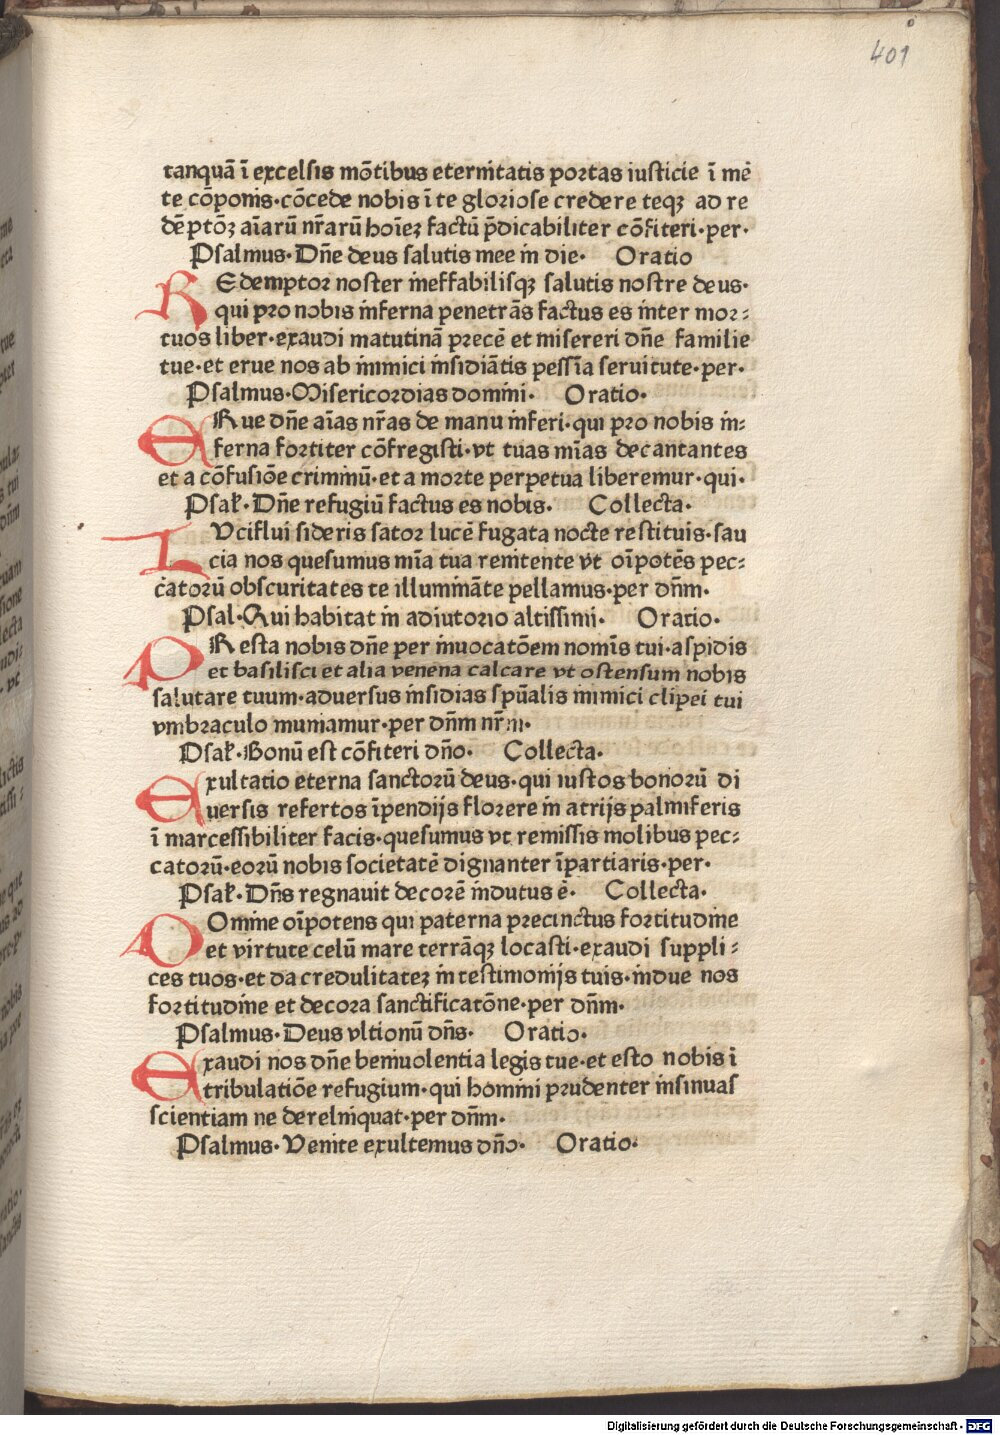 401
tanquā ī excelsis mōtibus eternitatis portas iusticie ī mē
te cōponis·cōcede nobis ī te gloriose credere teqꝫ ad re
dēptōꝫ aīarū nr̄arū hoīeꝫ factū p̄dicabiliter cōfiteri·per·
Psalmus·Dn̄e deus salutis mee in die· Oratio
REdemptor noster ineffabilisqꝫ salutis nostre deus·
qui pro nobis inferna penetrās factus es inter mor⸗
tuos liber·exaudi matutinā precē et misereri dn̄e familie
tue·et erue nos ab inimici insidiātis pessīa seruitute·per·
Psalmus·Misericordias domini· Oratio·
ERue dn̄e aīas nr̄as de manu inferi·qui pro nobis in⸗
ferna fortiter cōfregisti·vt tuas mīas decantantes
et a cōfusiōe criminū·et a morte perpetua liberemur·qui·
Psal̄·Dn̄e refugiū factus es nobis· Collecta·
LVciflui sideris sator lucē fugata nocte restituis·sau
cia nos quesumus mīa tua renitente vt oīpotēs pec⸗
catorū obscuritates te illumināte pellamus·per dn̄m·
Psal·Qui habitat in adiutorio altissimi· Oratio·
PResta nobis dn̄e per inuocatōem nomīs tui·aspidis
et basilisci et alia venena calcare vt ostensum nobis
salutare tuum·aduersus insidias spūalis inimici clipei tui
vmbraculo muniamur·per dn̄m nr̄m·
Psal̄·Bonū est cōfiteri dn̄o· Collecta·
Exultatio eterna sanctorū deus·qui iustos bonorū di
uersis refertos īpendijs florere in atrijs palmiferis
ī marcessibiliter facis·quesumus vt remissis molibus pec⸗
catorū·eorū nobis societatē dignanter īpartiaris·per·
Psal̄·Dn̄s regnauit decorē indutus ē· Collecta·
DOmine oīpotens qui paterna precinctus fortitudine
et virtute celū mare terrāqꝫ locasti·exaudi suppli⸗
ces tuos·et da credulitateꝫ in testimonijs tuis·indue nos
fortitudine et decora sanctificatōne·per dn̄m·
Psalmus·Deus vltionū dn̄s· Oratio·
Exaudi nos dn̄e beniuolentia legis tue·et esto nobis ī
tribulatiōe refugium·qui homini prudenter insinuas
scientiam ne derelinquat·per dn̄m·
Psalmus·Venite exultemus dn̄o· Oratio·
Digitalisierung gefördert durch die Deutsche Forschungsgemeinschaft - DFG